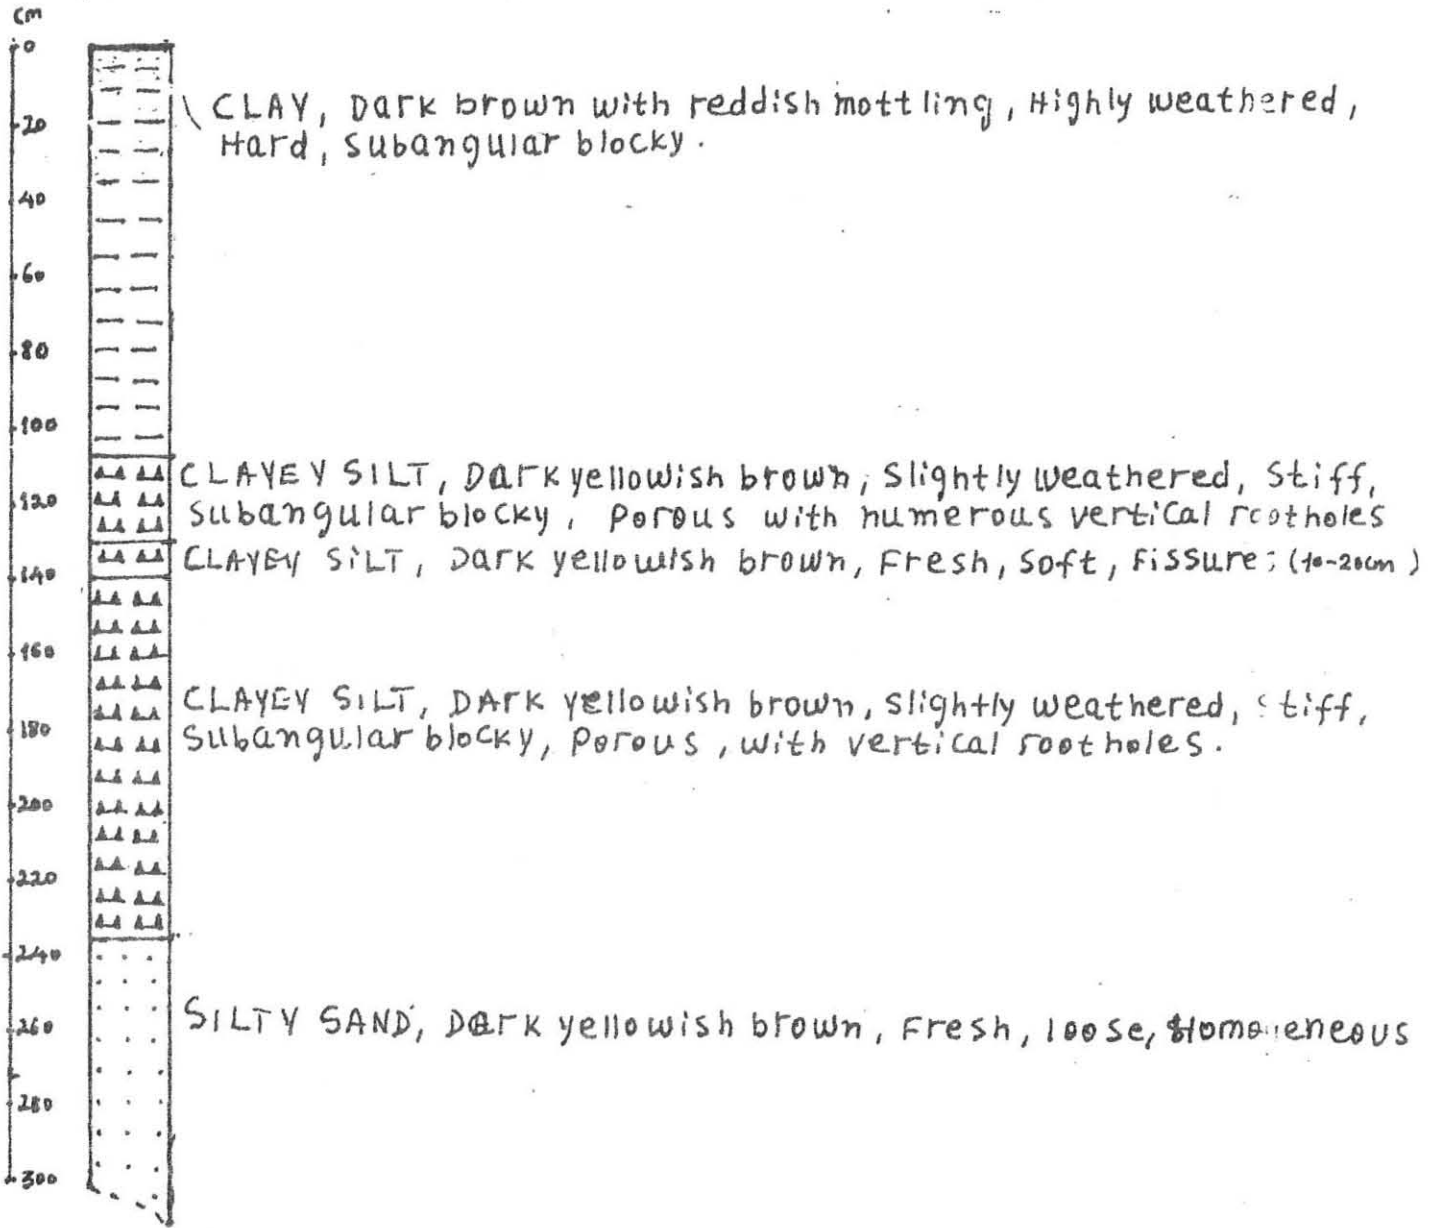 cm
0
20
40
60
80
100
120
140
160
180
200
220
240
260
280
300
CLAY, Dark brown with reddish mottling, Highly weathered,
Hard, Subangular blocky.
CLAYEY SILT, Dark yellowish brown, Slightly weathered, Stiff,
Subangular blocky, Porous with numerous vertical rootholes
CLAYEY SILT, Dark yellowish brown, Fresh, Soft, Fissure; (10-20cm)
CLAYEY SILT, DArk yellowish brown, Slightly weathered, Stiff,
Subangular blocky, Porous, with vertical root holes.
SILTY SAND, Dark yellowish brown, Fresh, loose, Homogeneous